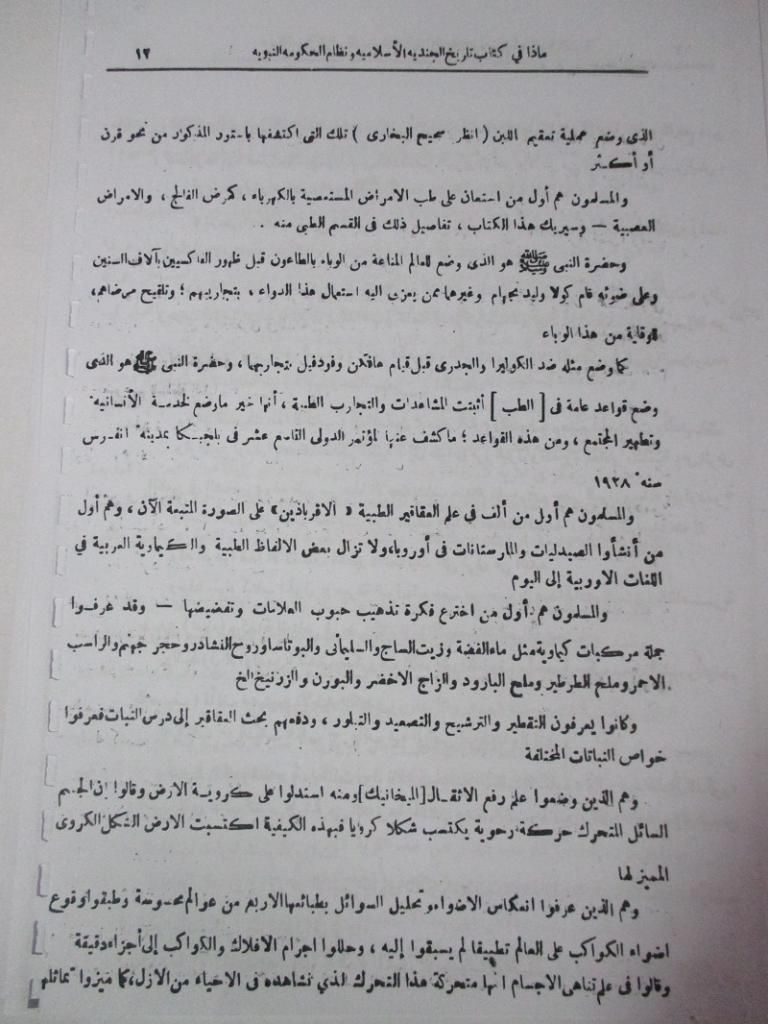 ماذا في كتاب تاريخ الجنديه الأسلاميه ونظام الحكومه النبويه ١٢
الذى وضع عملية تعقيم اللبن ( انظر صحيح البخارى ) تلك التى اكتشفها باستور المذكور من نحو قرن
أو أكثر
والمسلمون هم أول من استعان على طب الامراض المستعصية بالكهرباء ، كمرض الفالج ، والامراض
العصبية — وسيريك هذا الكتاب ، تفاصيل ذلك فى القسم الطبى منه .
وحضرة النبى ﷺ هو الذى وضع للعالم المناعة من الوباء بالطاعون قبل ظهور الماكسيين بآلاف السنين
وعلى ضوئه قام كولا وليد نجهام وغيرهما ممن يعزى اليه استعمال هذا الدواء ، بتجاريبهم ؛ وتلقيح مرضاهم ،
للوقاية من هذا الوباء
كما وضع مثله ضد الكوليرا والجدرى قبل قيام هافكن وفودفيل بتجاربهما ، وحضرة النبى ﷺ هو الذى
وضع قواعد عامة فى [ الطب ] أثبتت المشاهدات والتجارب الطبية ، أنها خير ما وضع لخدمة الأنسانيه
وتطهير المجتمع ، ومن هذه القواعد ؛ ما كشف عنها المؤتمر الدولى التاسع عشر فى بلجيكا بمدينة انفرس
سنه ١٩٢٨
والمسلمون هم أول من ألف في علم العقاقير الطبية « الاقرباذين » على الصورة المتبعة الآن ، وهم أول
من أنشأوا الصيدليات والمارستانات فى أوروبا، ولا تزال بعض الالفاظ الطبية والكيماوية العربية في
اللغات الاوربية إلى اليوم
والمسلمون هم أول من اخترع فكرة تذهيب حبوب العلامات وتفضيضها — وقد عرفوا
جملة مركبات كيماوية مثل ماء الفضة وزيت الساج والسليمانى والبوتاسا وروح النشادر وحجر جهنم والراسب
الاحمر وملح الطرطير وملح البارود والزاج الاخضر والبورن والزرنيخ الخ
وكانوا يعرفون التقطير والترشيح والتصعيد والتبلور ، ودفعهم بحث العقاقير إلى درس النبات فعرفوا
خواص النباتات المختلفة
وهم الذين وضعوا علم رفع الاثقال [الميخانيك] ومنه استدلوا على كروية الارض وقالوا إن الجسم
السائل المتحرك حركة رحوية يكتسب شكلا كرويا فبهذه الكيفية اكتسبت الارض الشكل الكروى
المميز لها
وهم الذين عرفوا انعكاس الاضواء وتحليل السوائل بطبائعها الاربع من عوالم محسوسة وطبقوا وقوع
اضواء الكواكب على العالم تطبيقا لم يسبقوا إليه ، وحللوا اجرام الافلاك والكواكب إلى أجزاء دقيقة
وقالوا فى علم تناهى الاجسام انها متحركة هذا التحرك الذي نشاهده فى الاحياء من الازل، كما ميزوا تماثلها